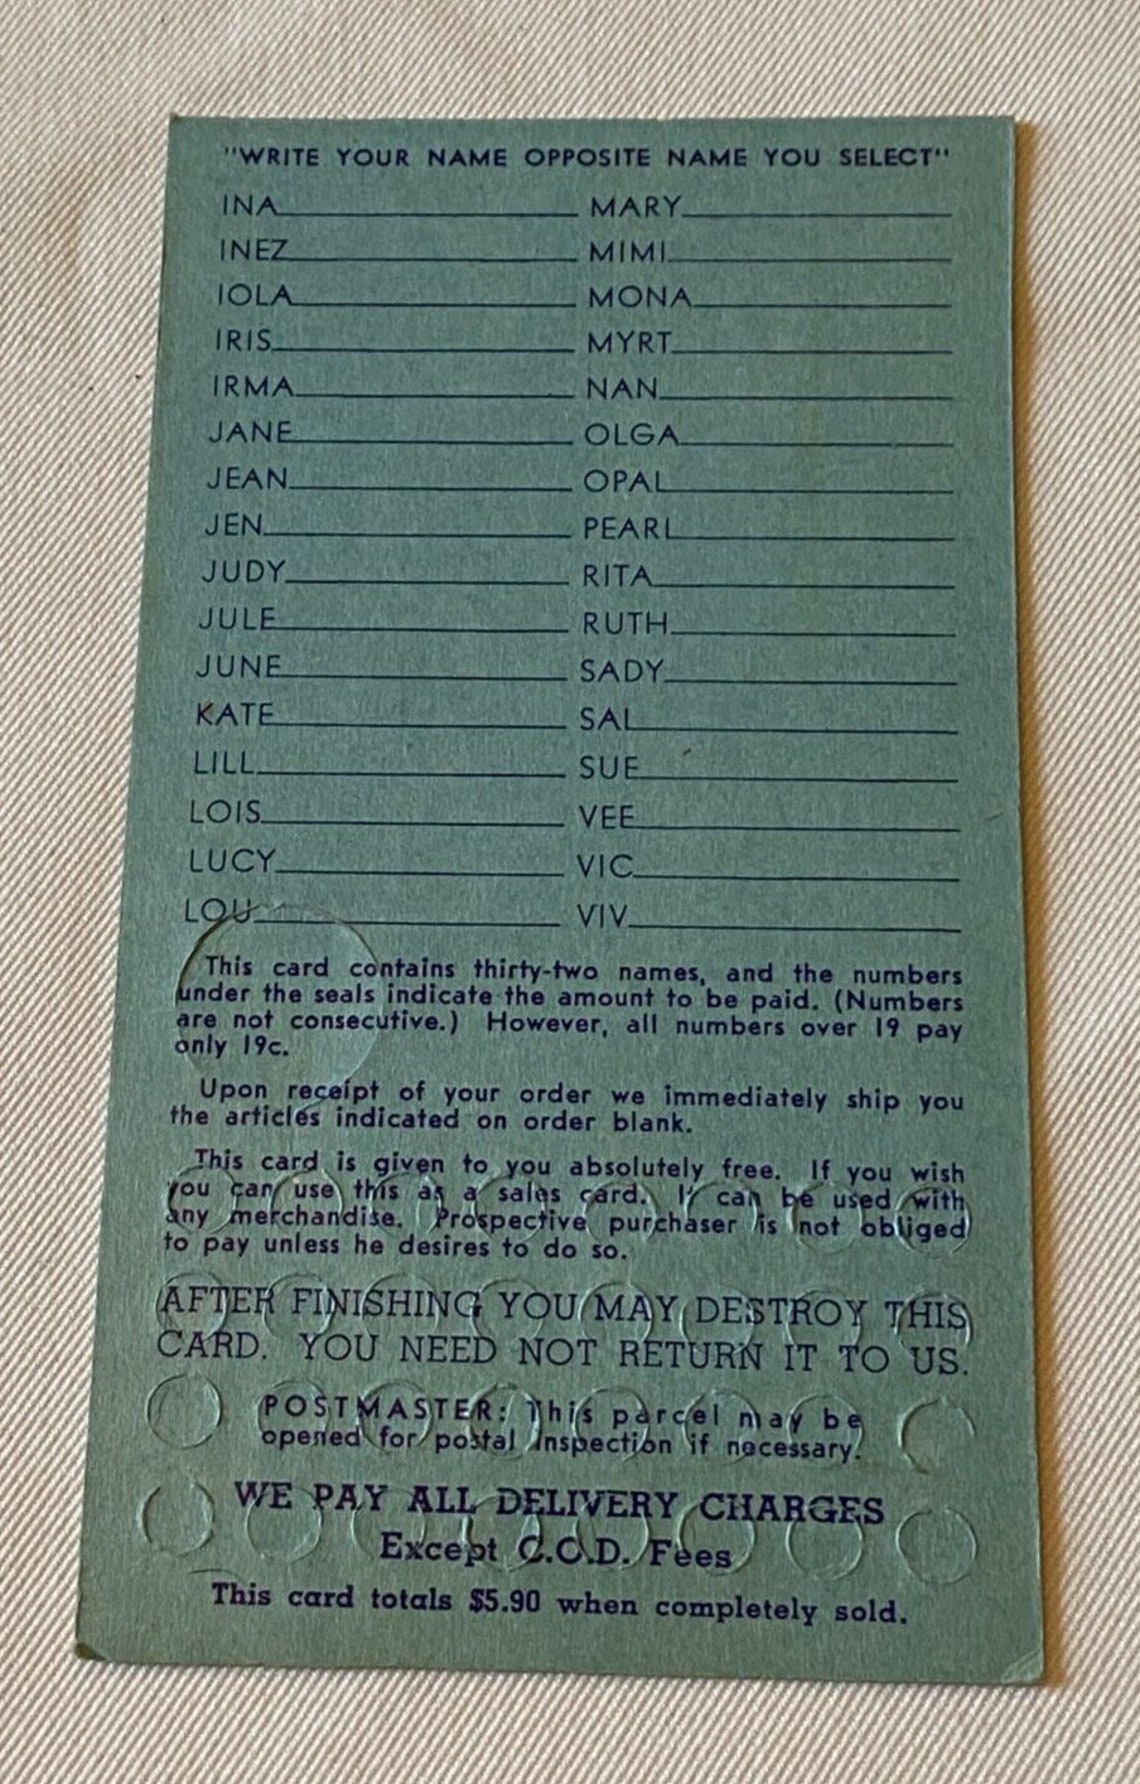 "WRITE YOUR NAME OPPOSITE NAME YOU SELECT"
INA MARY
INEZ MIMI
IOLA MONA
IRIS MYRT
IRMA NAN
JANE OLGA
JEAN OPAL
JEN PEARL
JUDY RITA
JULE RUTH
JUNE SADY
KATE SAL
LILL SUE
LOIS VEE
LUCY VIC
LOU VIV
This card contains thirty-two names, and the numbers
under the seals indicate the amount to be paid. (Numbers
are not consecutive.) However, all numbers over 19 pay
only 19c.
Upon receipt of your order we immediately ship you
the articles indicated on order blank.
This card is given to you absolutely free. If you wish
you can use this as a sales card. It can be used with
any merchandise. Prospective purchaser is not obliged
to pay unless he desires to do so.
AFTER FINISHING YOU MAY DESTROY THIS
CARD. YOU NEED NOT RETURN IT TO US.
POSTMASTER: This parcel may be
opened for postal inspection if necessary.
WE PAY ALL DELIVERY CHARGES
Except C.O.D. Fees
This card totals $5.90 when completely sold.